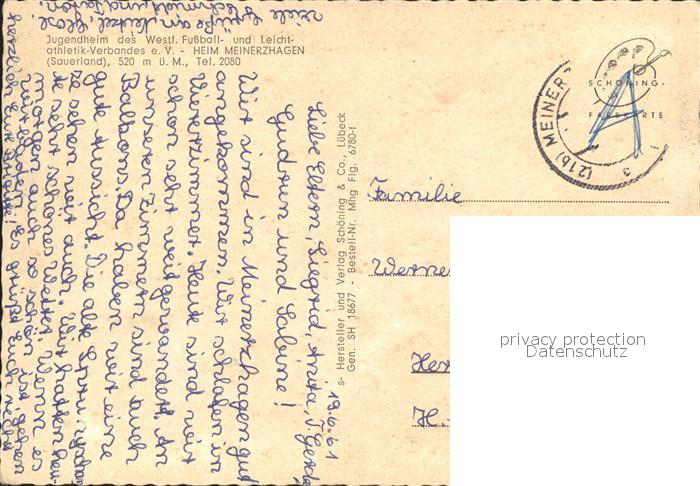 Jugendheim des Westf. Fußball- und Leicht-
athletik-Verbandes e. V. - HEIM MEINERZHAGEN
(Sauerland), 520 m ü. M., Tel. 2080
SCHÖNING-
FARBKARTE
(21b) MEINERZ
A
s- Hersteller und Verlag Schöning & Co., Lübeck
Gen. SH 18677 - Bestell-Nr. Mhg Flg. 6780-1
19.6.61
Liebe Eltern, Siegrid, Anita, T. Gerda
Gudrun und Sabine!
Wir sind in Meinerzhagen gut
angekommen. Wir schlafen im
Viererzimmer. Heute sind wir
schon sehr weit gewandert. An
unseren Zimmern sind auch
Balkons. Da haben wir eine
gute Aussicht. Die alte
sehen wir auch. Wir hatten heu-
te sehr schönes Wetter. Wenn es
morgen auch so schön ist, gehen
wir Es grüßt Euch recht
herzlich Eure
Viele
Grüße an
Familie
Werne
Her
H.
privacy protection
Datenschutz